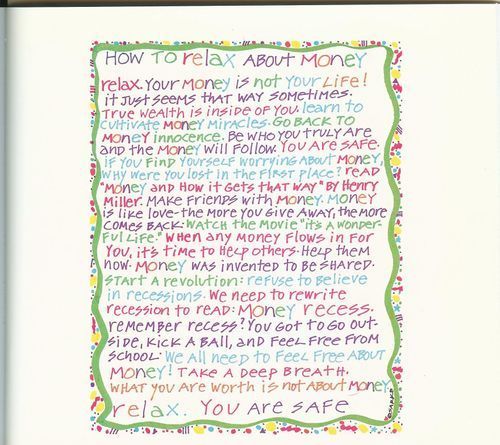 How To relax About Money
relax. Your Money is not Your Life!
it Just seems that way sometimes.
True wealth is inside of you. learn to
cultivate money miracles. Go BACK TO
Money innocence. Be who you truly are
and the money will follow. You Are SAFE.
if you find yourself worrying About Money,
why were you lost in the first place? read
"Money and How it Gets That way" By Henry
Miller. Make friends with money. Money
is like love-the more you Give Away, the more
comes Back. Watch the movie "it's a wonder-
ful Life." When any money flows in for
you, it's time to Help others. Help them
now. Money was invented to Be SHAred.
Start a revolution: refuse to Believe
in recessions. We need to rewrite
recession to read: Money recess.
remember recess? You Got to Go out-
side, kick A Ball, and feel free from
school. We all need to feel free About
Money! Take a Deep Breath.
What you Are worth is not about Money.
relax. You Are SAFE
©SARK